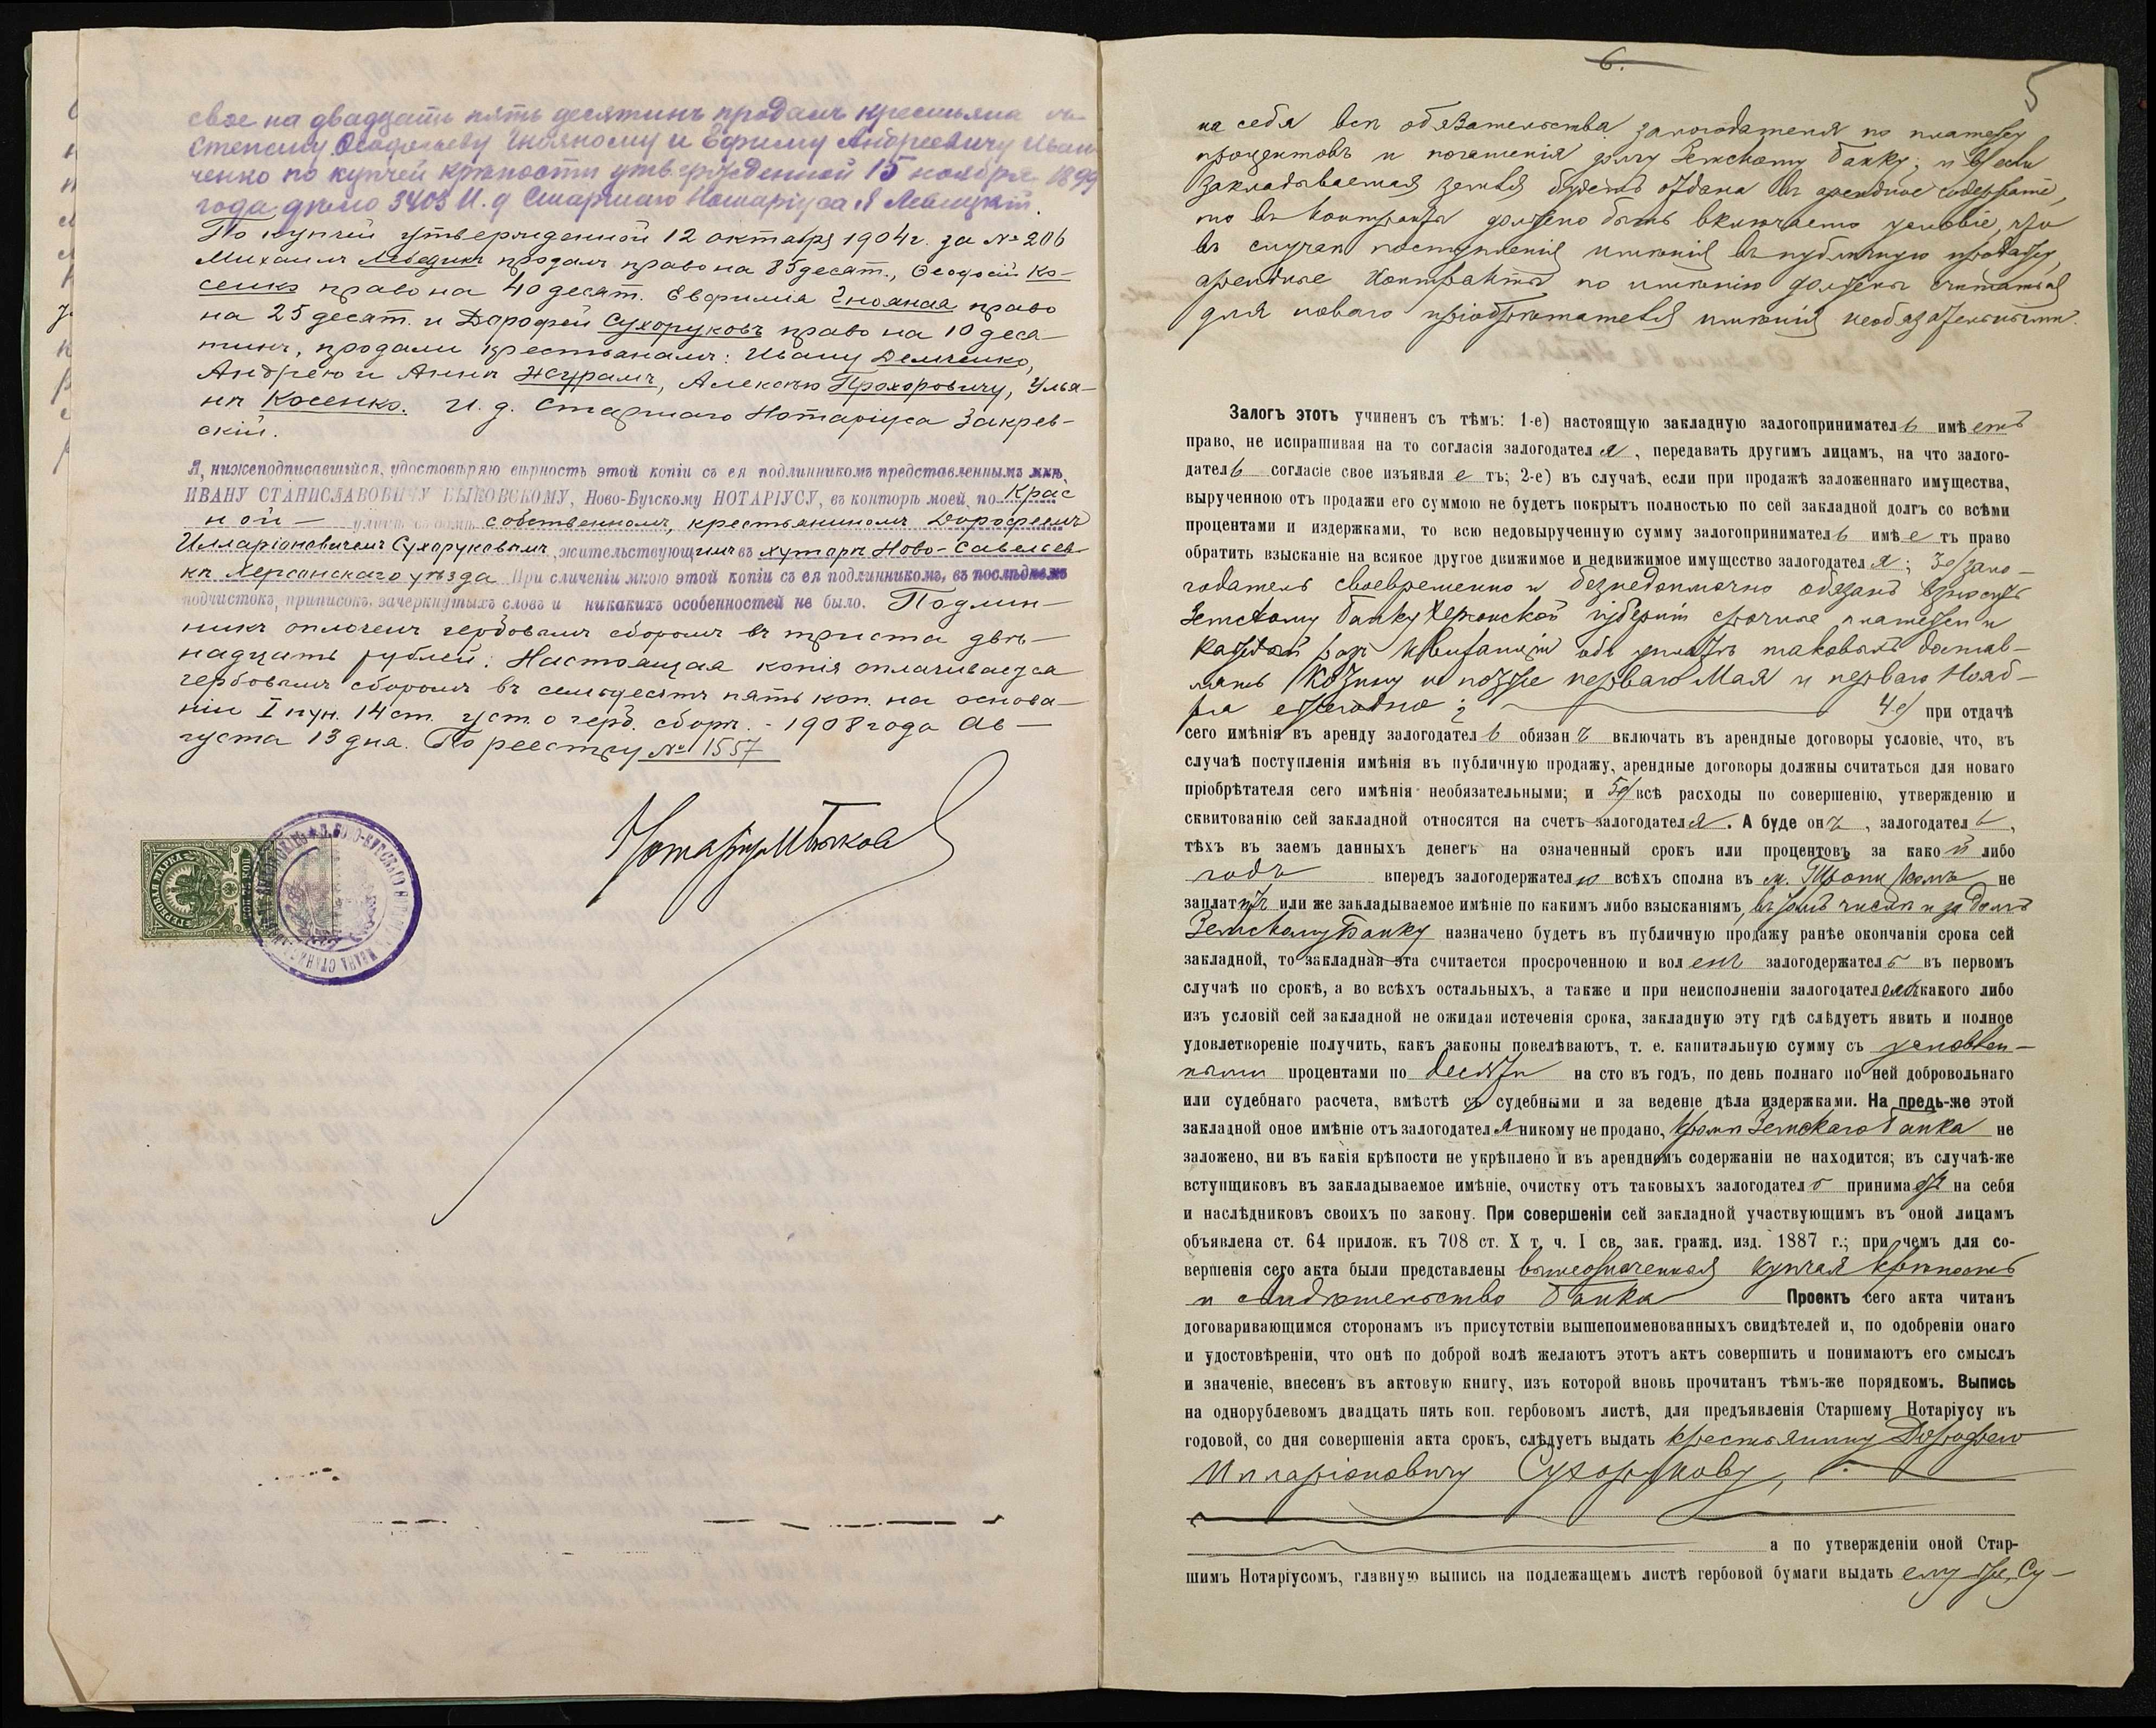 свое на двадцать пять десятинъ продалъ крестьяна мъ
Степану Ѳеодосьеву Гнояному и Ефиму Андреевичу Иван
ченко по купчей крѣпости утвержденной 15 ноября 1899
года дѣло 3403 И. д Старшаго Нотаріуса Я Левицкій.
По купчей утвержденной 12 октября 1904 г. за № 206
Михаилъ Лебединъ продалъ право на 85 десят., Ѳеодосій Ко-
сенко право на 40 десят. Евфимія Гнояная право
на 25 десят. и Дорофей Сухоруковъ право на 10 деся-
тинъ, продали крестьянамъ: Ивану Демченко,
Андрею и Аннѣ Журамъ, Алексѣю Прохоровичу, Улья-
нѣ Косенко. И. д. Старшаго Нотаріуса Закрев-
скій.
Я, нижеподписавшійся, удостовѣряю вѣрность этой копіи съ ея подлинникомъ представленнымъ мнѣ,
ИВАНУ СТАНИСЛАВОВИЧУ БЫКОВСКОМУ, Ново-Бугскому НОТАРІУСУ, въ конторѣ моей, по Крас
ной — собственномъ, крестьяниномъ Дорофеемъ
Илларіоновичемъ Сухоруковымъ, жительствующимъ въ хуторѣ Ново-Савельев-
кѣ Херсонскаго уѣзда При сличеніи мною этой копіи съ ея подлинникомъ, въ послѣднемъ
подчистокъ, приписокъ, зачеркнутыхъ словъ и никакихъ особенностей не было. Подлин-
никъ оплоченъ гербовымъ сборомъ въ триста двѣ-
надцать рублей. Настоящая копія оплачивается
гербовымъ сборомъ въ семьдесятъ пять коп. на основа-
ніи I пун. 14 ст. уст. о герб. сборѣ. - 1908 года Ав-
густа 13 дня. По реестру № 1557
Нотаріусъ
ГЕРБОВАЯ МАРКА
6.
5
на себя всѣ обязательства залогодателя по платежу
процентовъ и погашенія долгу Земскому банку; и если
закладываемая земля будетъ отдана въ арендное содержаніе,
то въ контрактъ должено быть включаемо условіе, что
въ случаѣ поступленія имѣнія въ публичную продажу,
арендные контракты по имѣнію должены считаться
для новаго пріобрѣтателя имѣнія необязательными.
Залогъ этотъ учиненъ съ тѣмъ: 1-е) настоящую закладную залогоприниматель имѣетъ
право, не испрашивая на то согласія залогодателя, передавать другимъ лицамъ, на что залого-
датель согласіе свое изъявляетъ; 2-е) въ случаѣ, если при продажѣ заложеннаго имущества,
вырученною отъ продажи его суммою не будетъ покрытъ полностью по сей закладной долгъ со всѣми
процентами и издержками, то всю недовырученную сумму залогоприниматель имѣетъ право
обратить взысканіе на всякое другое движимое и недвижимое имущество залогодателя; 3-е/ зало-
годатель своевременно и бездоимочно обязанъ вносить
Земскому банку Херсонской губерніи срочные платежи и
каждый разъ квитанціи объ уплатѣ таковыхъ достав-
лять не позже перваго Мая и перваго Нояб-
ря ежегодно; 4-е/ при отдачѣ
сего имѣнія въ аренду залогодатель обязанъ включать въ арендные договоры условіе, что, въ
случаѣ поступленія имѣнія въ публичную продажу, арендные договоры должны считаться для новаго
пріобрѣтателя сего имѣнія необязательными; и 5е/ всѣ расходы по совершенію, утвержденію и
сквитованію сей закладной относятся на счетъ залогодателя. А буде онъ, залогодатель,
тѣхъ въ заемъ данныхъ денегъ на означенный срокъ или процентовъ за какой либо
годъ впередъ залогодержателю всѣхъ сполна въ м. не
заплатитъ или же закладываемое имѣніе по какимъ либо взысканіямъ, въ томъ числѣ и за долгъ
Земскому Банку назначено будетъ въ публичную продажу ранѣе окончанія срока сей
закладной, то закладная эта считается просроченною и воленъ залогодержатель въ первомъ
случаѣ по срокѣ, а во всѣхъ остальныхъ, а также и при неисполненіи залогодателемъ какого либо
изъ условій сей закладной не ожидая истеченія срока, закладную эту гдѣ слѣдуетъ явить и полное
удовлетвореніе получить, какъ законы повелѣваютъ, т. е. капитальную сумму съ условлен-
ными процентами по десяти на сто въ годъ, по день полнаго по ней добровольнаго
или судебнаго расчета, вмѣстѣ съ судебными и за веденіе дѣла издержками. На предь-же этой
закладной оное имѣніе отъ залогодателя никому не продано, кромѣ Земскаго банка не
заложено, ни въ какія крѣпости не укрѣплено и въ арендномъ содержаніи не находится; въ случаѣ-же
вступщиковъ въ закладываемое имѣніе, очистку отъ таковыхъ залогодатель принимаетъ на себя
и наслѣдниковъ своихъ по закону. При совершеніи сей закладной участвующимъ въ оной лицамъ
объявлена ст. 64 прилож. къ 708 ст. X т. ч. I св. зак. гражд. изд. 1887 г.; при чемъ для со-
вершенія сего акта были представлены вышеозначенная купчая крѣпость
и свидѣтельство банка Проектъ сего акта читанъ
договаривающимся сторонамъ въ присутствіи вышепоименованныхъ свидѣтелей и, по одобреніи онаго
и удостовѣреніи, что онѣ по доброй волѣ желаютъ этотъ актъ совершить и понимаютъ его смыслъ
и значеніе, внесенъ въ актовую книгу, изъ которой вновь прочитанъ тѣмъ-же порядкомъ. Выпись
на однорублевомъ двадцать пять коп. гербовомъ листѣ, для предъявленія Старшему Нотаріусу въ
годовой, со дня совершенія акта срокъ, слѣдуетъ выдать крестьянину Дорофею
Илларіоновичу Сухорукову,
а по утвержденіи оной Стар-
шимъ Нотаріусомъ, главную выпись на подлежащемъ листѣ гербовой бумаги выдать ему же, Су-